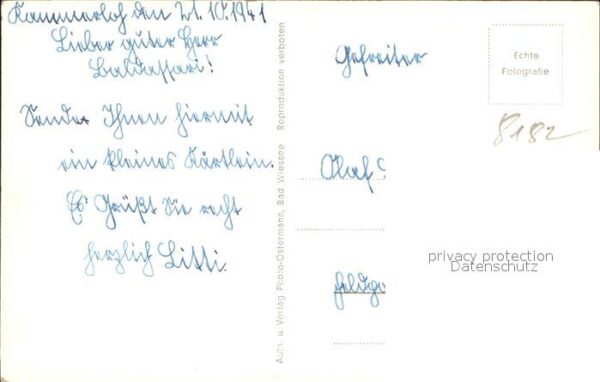 Kammerloh den 21.10.1941
Lieber guter Herr
Baldassari!
Sende Ihnen hiermit
ein kleines Kärtlein.
Es Grüßt Sie recht
herzlich Litti.
Aufn. u. Verlag Photo-Ostermann, Bad Wiessee Reproduktion verboten
Gefreiter
Olaf
Feldpo
Echte
Fotografie
8182
privacy protection
Datenschutz